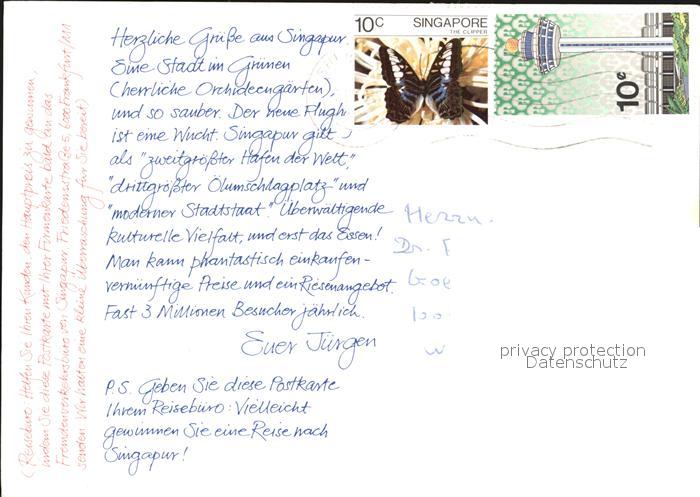 Herzliche Grüße aus Singapur.
Eine Stadt im Grünen
(herrliche Orchideengärten),
und so sauber. Der neue Flugh
ist eine Wucht. Singapur gilt
als "zweitgrößter Hafen der Welt,"
"drittgrößter Ölumschlagplatz" und
"moderner Stadtstaat". Überwältigende
kulturelle Vielfalt, und erst das Essen!
Man kann phantastisch einkaufen-
vernünftige Preise und ein Riesenangebot.
Fast 3 Millionen Besucher jährlich.
Euer Jürgen
P.S. Geben Sie diese Postkarte
Ihrem Reisebüro: Vielleicht
gewinnen Sie eine Reise nach
Singapur!
(Reisebüro: Helfen Sie Ihren Kunden, den Hauptpreis zu gewinnen,
indem Sie diese Postkarte mit Ihrer Firmenkarte bald an das
Fremdenverkehrsbüro von Singapur, Friedensstraße 5, 6000 Frankfurt/M 1
senden. Wir halten eine kleine Überraschung für Sie bereit)
10c SINGAPORE
THE CLIPPER
10c
Herrn
Dr. F
privacy protection
Datenschutz